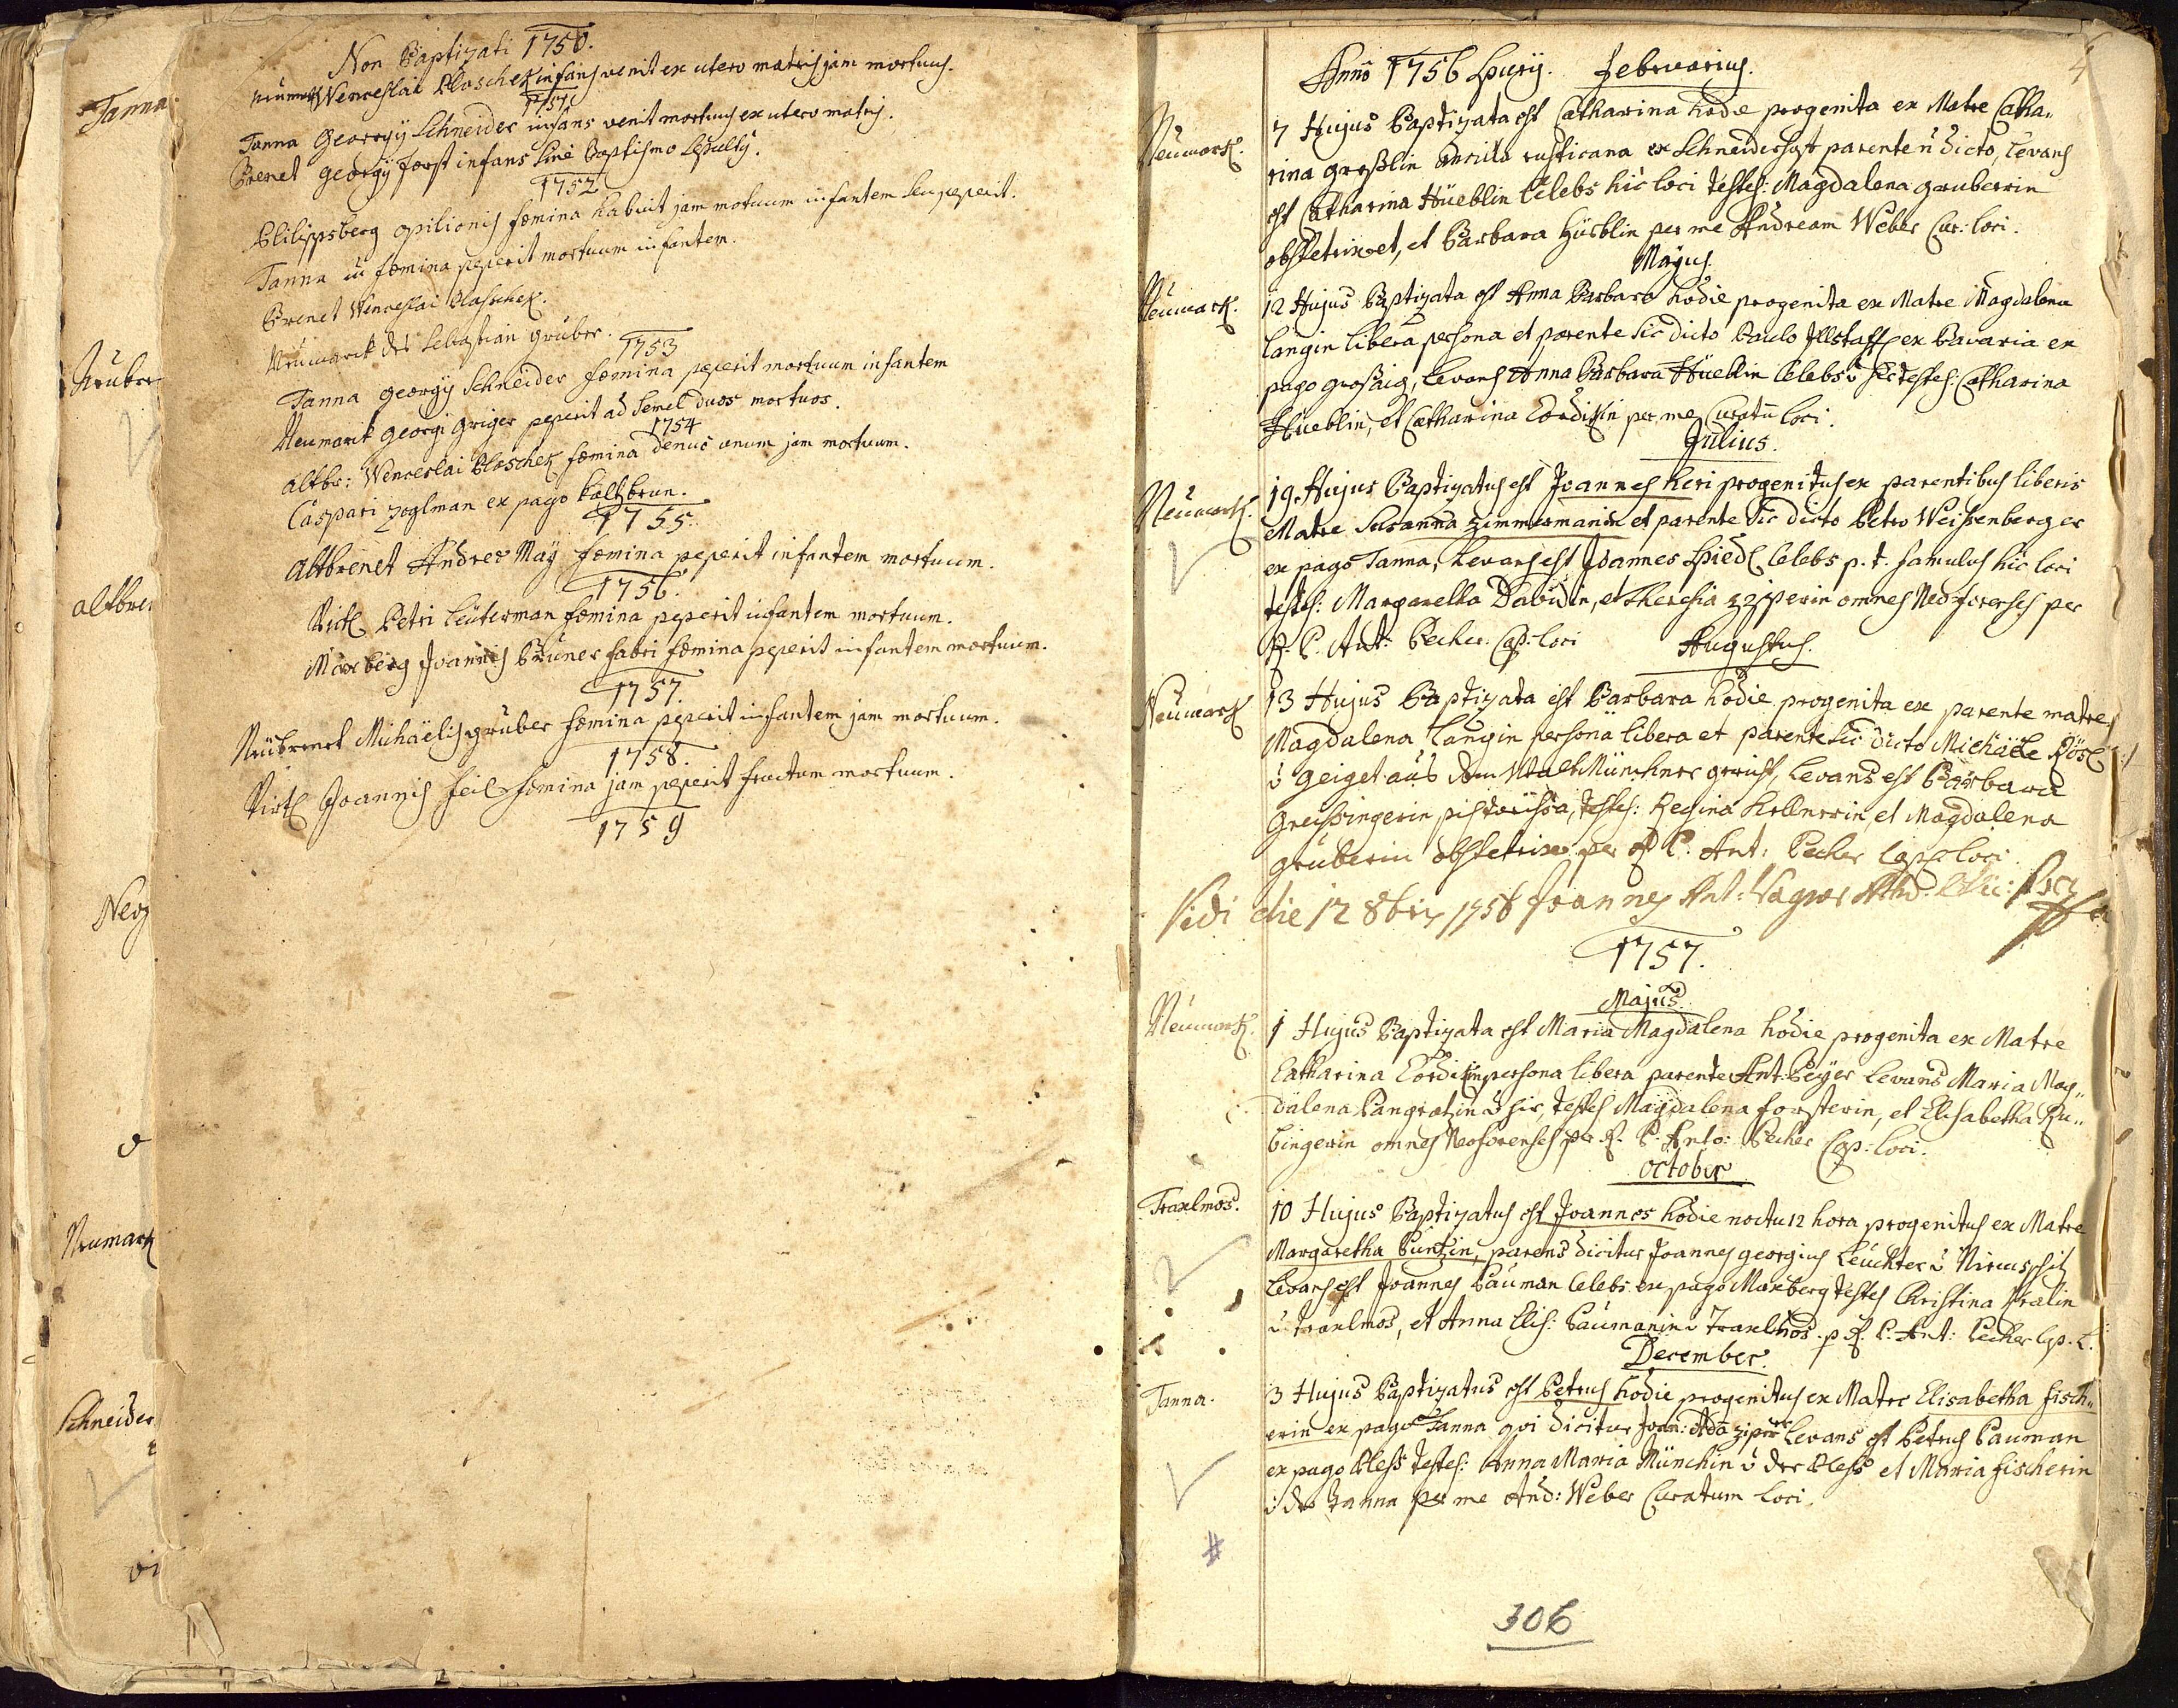 Tanna
Neubre
altbre
Neog
Neumark
Schneider
Non Baptizati 1750.
Neumark Wenceslai Blaschek infans venit ex utero matris jam mortuus.
1751.
Tanna Georgÿ Schneider infans venit mortuus ex utero matris.
Brenet georgÿ forst infans sine Baptismo sepultÿ.
1752
Philippsberg opilionis fœmina habuit jam motuum infantem seu peperit.
Tanna fœmina peperit mortuum infantem.
Brenet Wenceslai Blaschek.
Neumarck des Sebastian gruber.
1753
Tanna georgÿ Schneider fœmina peperit mortuum infantem
Neumark georgi griger peperit ad semel duos mortuos.
1754
altbr: Wenceslai Blaschek fœmina denuo unum jam mortuum.
Caspari zoglman ex pago kaltzbrun.
1755.
Altbrenet Andreæ Maÿ fœmina peperit infantem mortuum.
1756.
Petri Leuterman fœmina peperit infantem mortuum.
Maxberg Joannis Bruner fabri fœmina peperit infantem mortuum.
1757.
Neubrenet Michaëlis gruber fœmina peperit infantem jam mortuum.
1758.
Joannis feil fœmina jam peperit fructum mortuum.
1759
4
Anno 1756 Spurÿ. Februarius.
Neumark. 7 Hujus Baptizata est Catharina hodie progenita ex Matre Catha„
rina großlin ancilla rusticana ex Schneiderhoff parente ñ dicto, levans
est Catharina Hüeblin Celebs hic loci testes: Magdalena gruberin
obstetrix et, et Barbara Hüeblin per me Andream Weber Cur: loci.
Majus.
Neumark. 12 Hujus Baptizata est Anna Barbara hodie progenita ex Matre Magdalena
langin libera persona et parente sic dicto Paulo ex Bavaria ex
pago großaig, levans Anna Barbara Hüeblin Celebs testes: Catharina
Hüeblin, et Catharina Cordikin per me Curatũ loci.
Julius.
Neumark. 19. Hujus Baptizatus est Joannes heri progenitus ex parentibus liberis
Matre Susanna Zimmermanin et parente sic dicto Petro Weissenberger
ex pago Tanna, levans est Joannes Spiedl Celebs p. t. famulus hic loci
testes: Margarella Davidin, et Theresia zziperin omnes Neoforenses per
R. P. Ant: Pecher Cap: loci
Augustus.
Neumark 13 Hujus Baptizata est Barbara hodie progenita ex parente matre
Magdalena langin persona libera et parente sic dicto Michaële Rösl
v geiget aus dem WaldMünchner gericht, levans est Barbara
greissingerin pistorissa, testes: Regina Kellnerin, et Magdalena
gruberin obstetrix per R. P. Ant: Pecher Cap: loci.
Vidi die 12 8bris 1756 Joannes Ant: Wagner
1757.
Majus.
Neumark. 1 Hujus Baptizata est Maria Magdalena hodie progenita ex Matre
Catharina Cordikin persona libera parente Ant: Beÿer levans Maria Mag„
dalena Pangratzin v hir, testes Magdalena forsterin, et Elisabetha Ru„
bingerin omnes Neoforenses per R. P. Anto: Pecher Cap: loci.
October
Traxlmos. 10 Hujus Baptizatus est Joannes hodie noctu 12 hora progenitus ex Matre
Margaretha Puntzin, parens dicitur Joannes georgius Leuchter v
levans est Joannes Pauman Celebs ex pago Maxberg testes Christina Pralin
v traxlmos, et Anna Elis: Paumanin v Traxlmos p R. P. Ant: Pecher Cap. L.
December.
Tanna. 3 Hujus Baptizatus est Petrus hodie progenitus ex Matre Elisabetha fisch„
erin ex pago Tanna qvi dicitur Joan: Ada ziperer levans est Petrus Pauman
ex pago Pless testes: Anna Maria Münchin v der Pless et Maria fischerin
v der Tanna per me And: Weber Curatum loci.
#
306